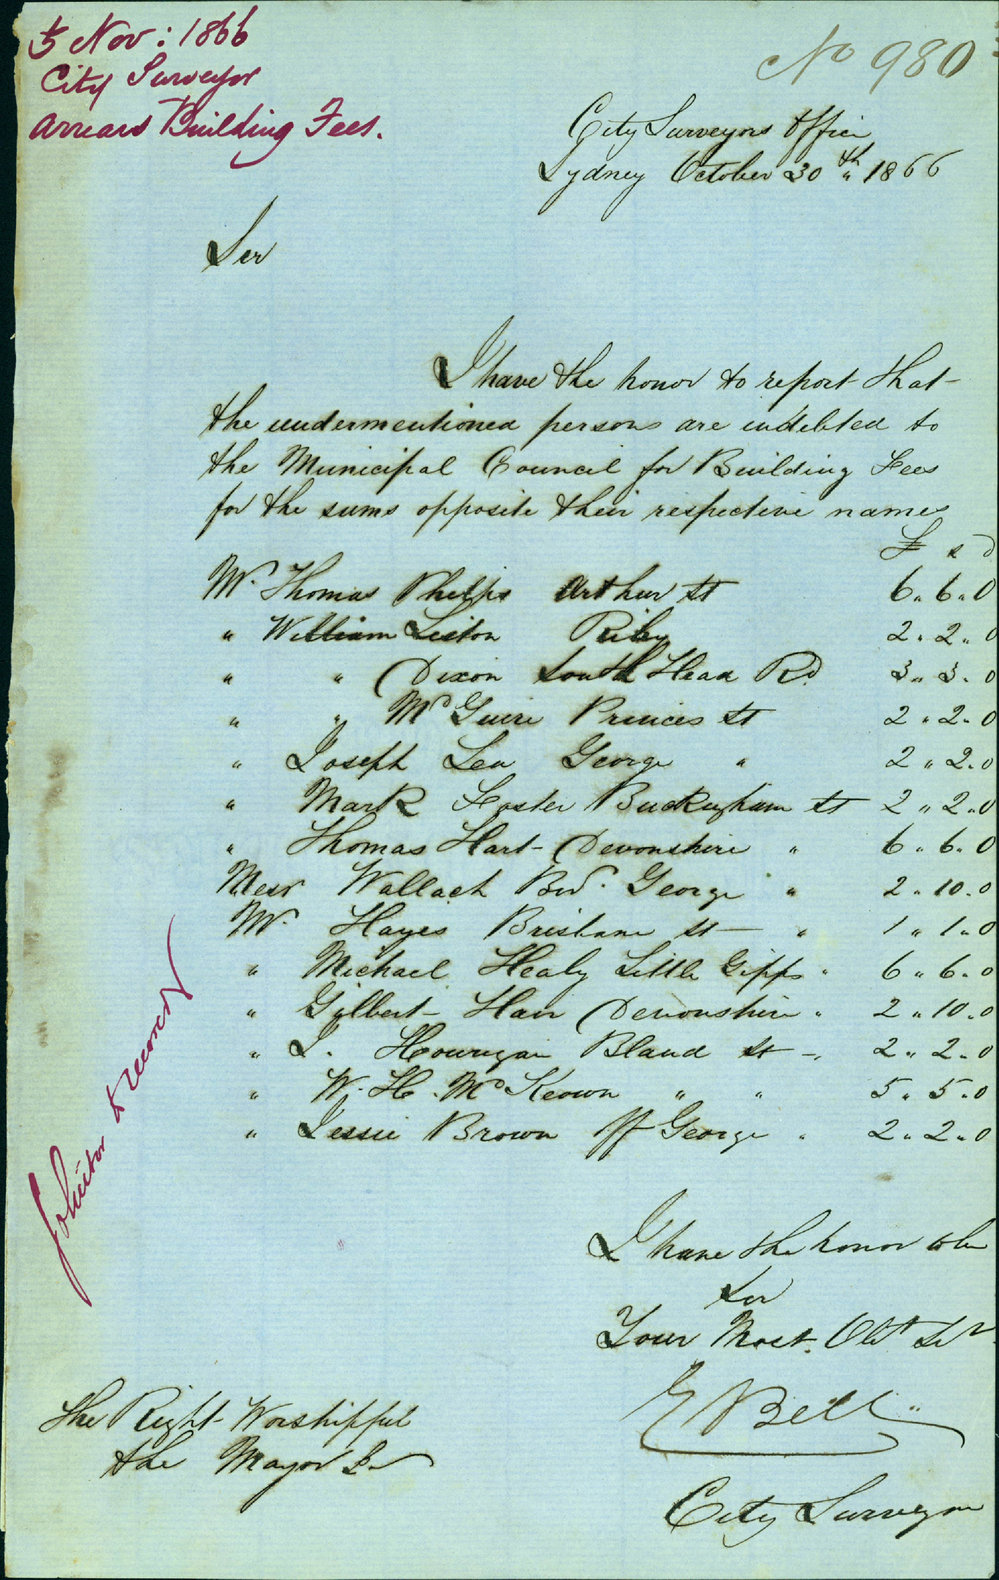 5 Nov: 1866
City Surveyor
Arrears Building Fees.
No 980
City Surveyors Office
Sydney October 30th 1866
Sir
I have the honor to report that
the undermentioned persons are indebted to
the Municipal Council for Building Fees
for the sums opposite their respective names
£ s d
Mr. Thomas Phelps Arthur St 6.6.0
" William Liston Riley 2.2.0
" " Dixon South Head Rd 3.3.0
" " McGuire Princes St 2.2.0
" Joseph Lea George " 2.2.0
" Mark Foster Buckingham St 2.2.0
" Thomas Hart Devonshire " 6.6.0
Messr Wallach Bros. George " 2.10.0
Mr. Hayes Brisbane St " 1.1.0
" Michael Healy Little Gipps " 6.6.0
" Gilbert Hair Devonshire " 2.10.0
" J. Hourigan Bland St 2.2.0
" W. H. McKeown " " 5.5.0
" Jessie Brown off George " 2.2.0
Solicitor to recover
I have the honor to be
Sir
Your Most. Obt Sr
E Bell
City Surveyor
The Right Worshipful
the Mayor &c